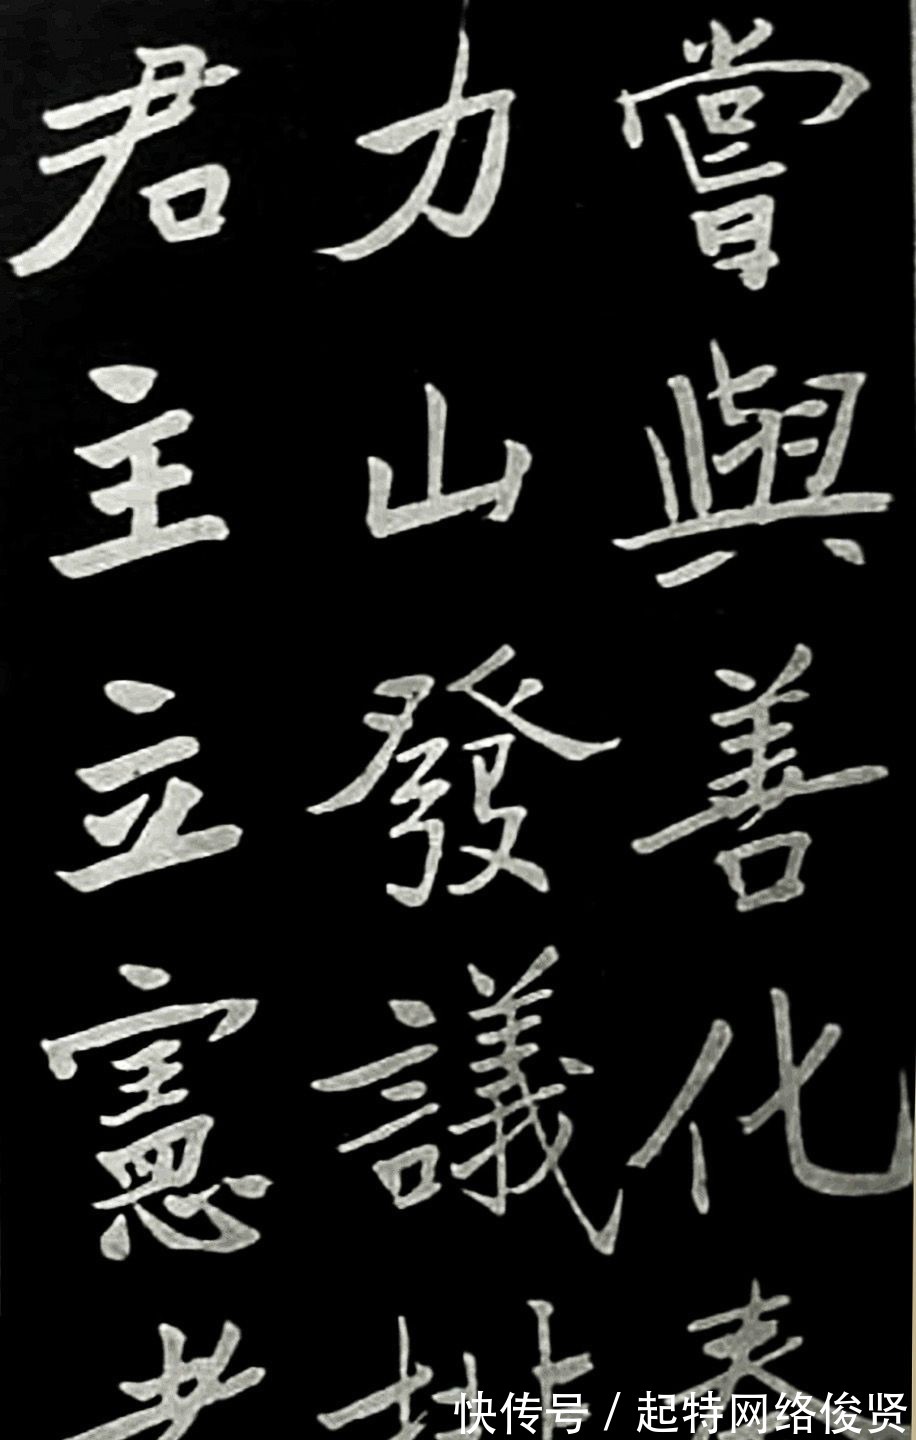 嘗與善化秦
力山發議排
君主立憲者
快传号 / 起特网络俊贤